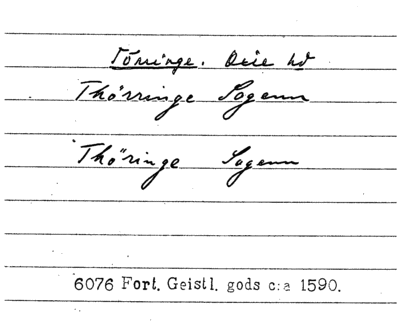 Törringe. Oxie hd
Thörringe Sogenn
Thöringe Sogenn
6076 Fort. Geistl. gods c:a 1590.